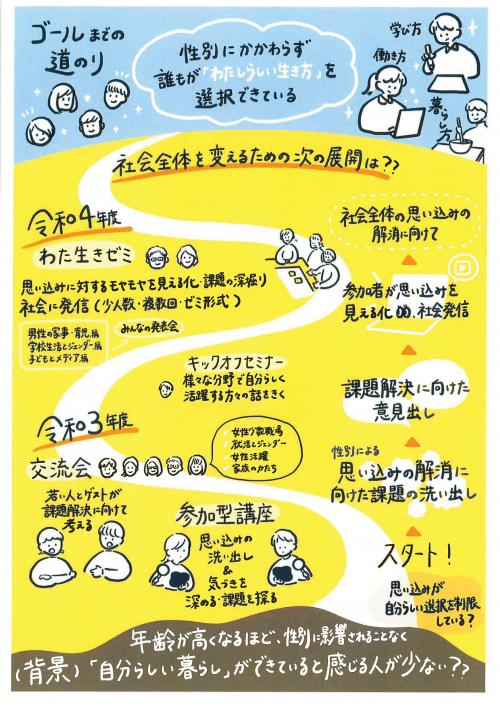 ゴールまでの
道のり
性別にかかわらず
誰もが「わたしらしい生き方」を
選択できている
学び方
働き方
暮らし方
社会全体を変えるための次の展開は??
令和4年度
わた生きゼミ
思い込みに対するモヤモヤを見える化・課題の深掘り
社会に発信(少人数・複数回・ゼミ形式)
男性の家事・育児編
学校生活とジェンダー編
子どもとメディア編
みんなの発表会
キックオフセミナー
様々な分野で自分らしく
活躍する方々の話をきく
令和3年度
交流会
女性少数職場
就活とジェンダー
女性活躍
家族のかたち
若い人とゲストが
課題解決に向けて
考える
参加型講座
思い込みの
洗い出し
&
気づきを
深める・課題を探る
社会全体の思い込みの
解消に向けて
参加者が思い込みを
見える化、社会発信
課題解決に向けた
意見出し
性別による
思い込みの解消に
向けた課題の洗い出し
スタート!
思い込みが
自分らしい選択を制限
している?
年齢が高くなるほど、性別に影響されることなく
(背景)「自分らしい暮らし」ができていると感じる人が少ない??